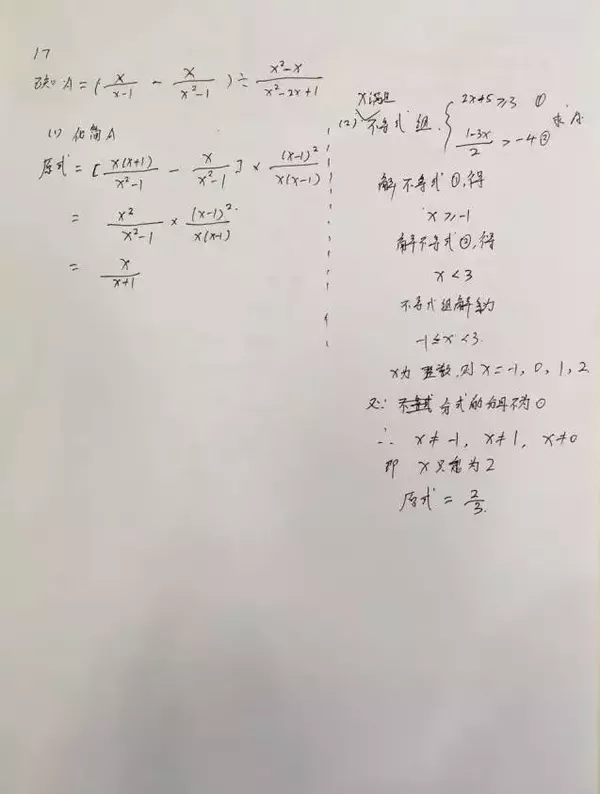 17
已知 A = (x/(x-1) - x/(x²-1)) ÷ (x²-x)/(x²-2x+1)
(1) 化简 A
原式 = [x(x+1)/(x²-1) - x/(x²-1)] × (x-1)²/(x(x-1))
= x²/(x²-1) × (x-1)²/(x(x-1))
= x/(x+1)
x满足
(2) 不等式组 { 2x+5≥3 ① 求A
(1-3x)/2 > -4 ②
解不等式①,得
x≥-1
解不等式②,得
x<3
不等式组解集为
-1≤x<3.
x为整数,则 x=-1, 0, 1, 2
又∵ 分式的分母不为0
∴ x≠-1, x≠1, x≠0
即 x只能为2
原式 = 2/3.